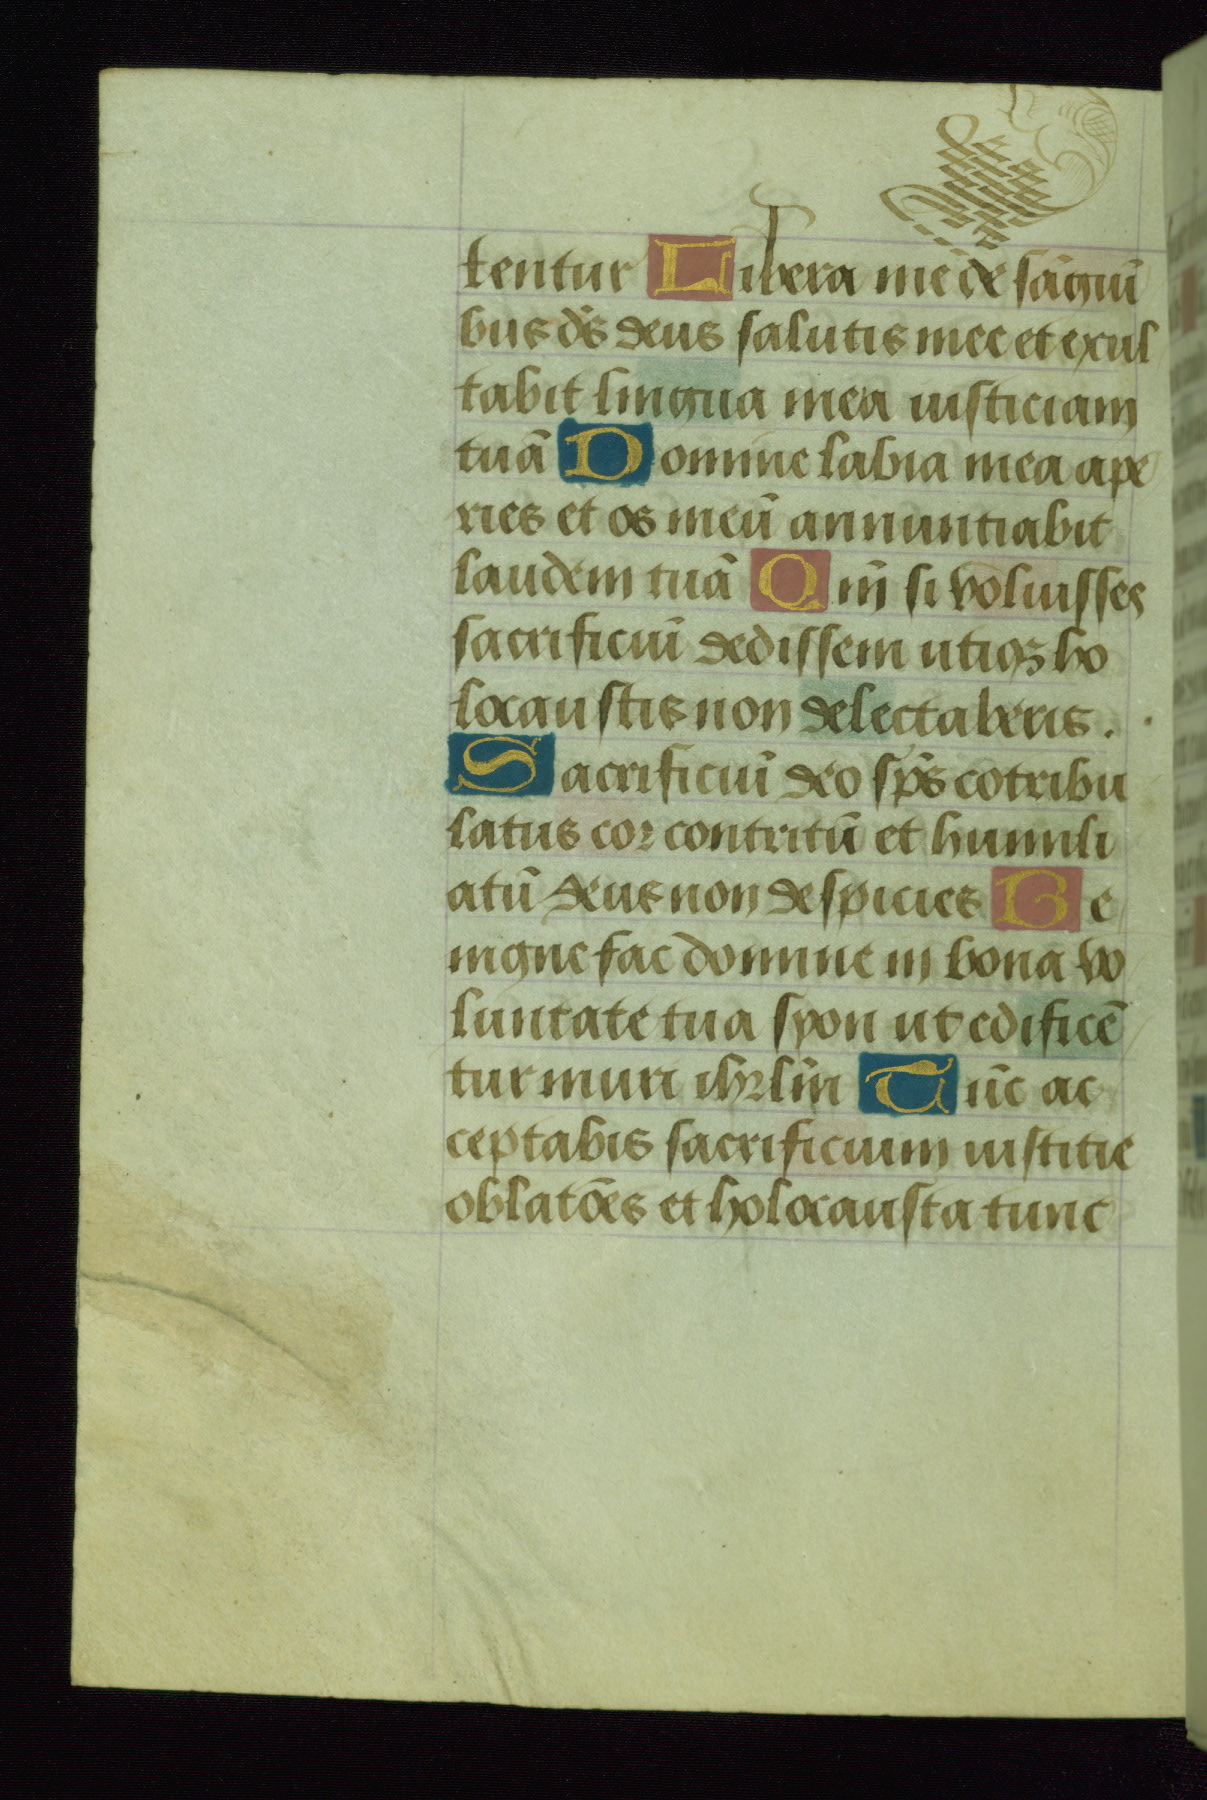 tentur Libera me de sāguī
bus ds̄ deus salutis mee et exul
tabit lingua mea iusticiam
tuā Domine labia mea ape
ries et os meū annuntiabit
laudem tuā Qm̄ si voluisses
sacrificiū dedissem utiqꝫ ho
locaustis non delectaberis.
Sacrificiū deo sp̄s cōtribu
latus cor contritū et humili
atū deus non despicies Be
nigne fac domine in bona vo
luntate tua syon ut edificē
tur muri ihrl̄m Tūc ac
ceptabis sacrificium iustitie
oblatōes et holocausta tunc